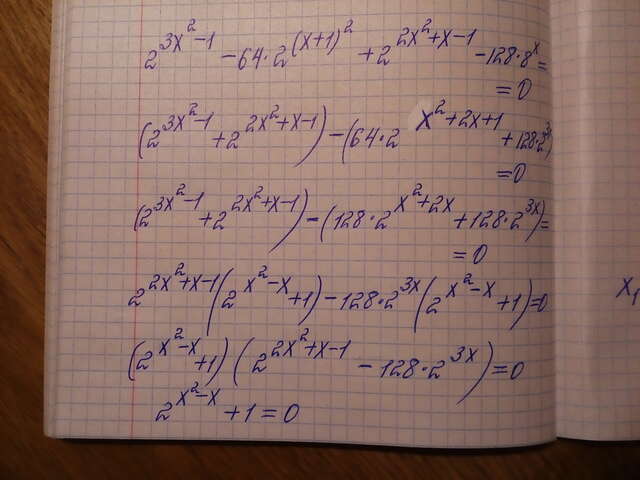 2^{3x^2-1} - 64·2^{(x+1)^2} + 2^{2x^2+x-1} - 128·8^x =
= 0
(2^{3x^2-1} + 2^{2x^2+x-1}) - (64·2^{x^2+2x+1} + 128·2^{3x})
= 0
(2^{3x^2-1} + 2^{2x^2+x-1}) - (128·2^{x^2+2x} + 128·2^{3x}) =
= 0
2^{2x^2+x-1}(2^{x^2-x} + 1) - 128·2^{3x}(2^{x^2-x} + 1) = 0
x_1
(2^{x^2-x} + 1)(2^{2x^2+x-1} - 128·2^{3x}) = 0
2^{x^2-x} + 1 = 0